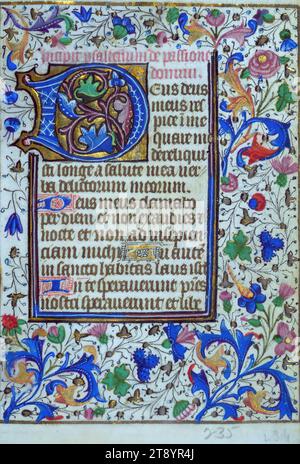 Incipit psalterium de passione
domini.
Deus deus
meus res
pice i me
quare me
dereliqui
sti longe a salute mea ver
ba delictorum meorum.
Deus meus clamabo
per diem et non exaudies
nocte et non ad insipien
ciam michi
Tu aute
in sancto habitas laus isr
In te speraverunt pres
nostri speraverunt et lib
235
a alamy
alamy
Image ID: 2T8YR4J
www.alamy.com